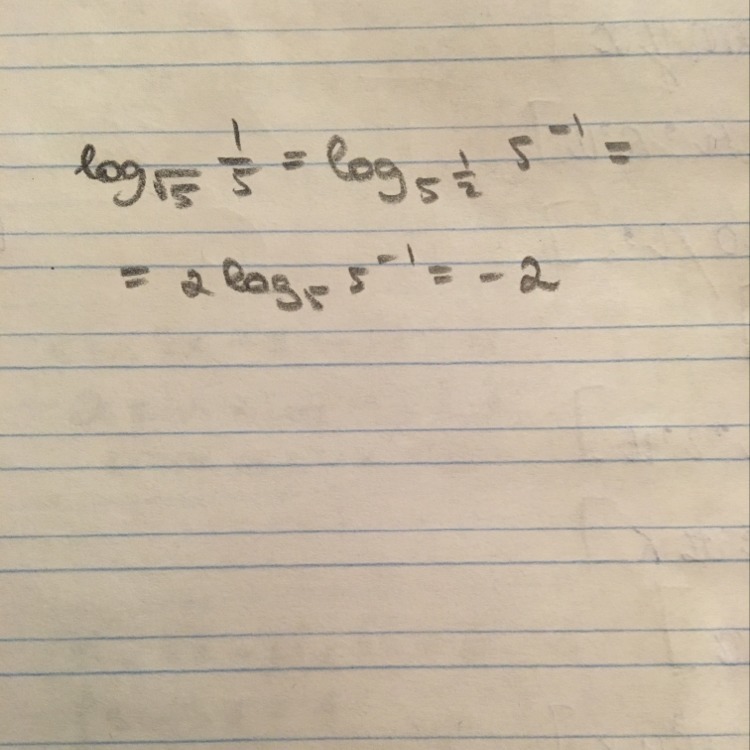 log_{√5} 1/5 = log_{5^{1/2}} 5^{-1} =
= 2 log_5 5^{-1} = - 2